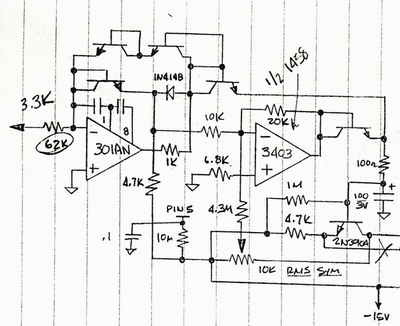 1/2 1458
1N4148
3.3K
62K
1
8
−
+
301AN
10K
20K
−
+
3403
1K
6.8K
100Ω
4.7K
1M
+
100
3V
PIN 5
4.3M
4.7K
.1
10M
2N3904
10K
RMS SYM
−15V